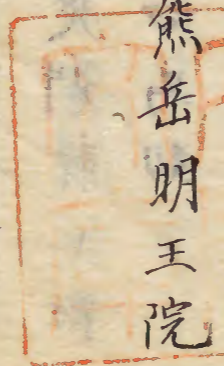 熊岳明王院